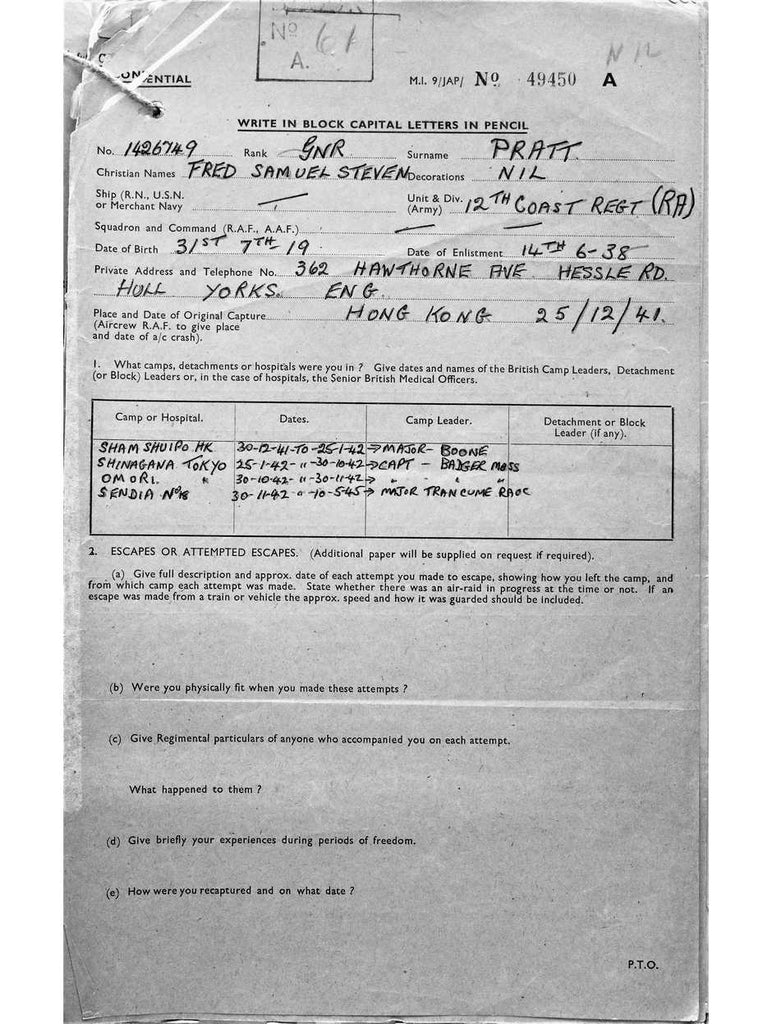 No 61
A.
NIL
CONFIDENTIAL
M.I. 9/JAP/ No 49450 A
WRITE IN BLOCK CAPITAL LETTERS IN PENCIL
No. 1426749 Rank GNR Surname PRATT
Christian Names FRED SAMUEL STEVEN Decorations NIL
Ship (R.N., U.S.N. or Merchant Navy
Unit & Div. (Army) 12TH COAST REGT (RA)
Squadron and Command (R.A.F., A.A.F.)
Date of Birth 31ST 7TH 19 Date of Enlistment 14TH 6-38
Private Address and Telephone No. 362 HAWTHORNE AVE HESSLE RD.
HULL YORKS. ENG.
Place and Date of Original Capture HONG KONG 25/12/41.
(Aircrew R.A.F. to give place
and date of a/c crash).
1. What camps, detachments or hospitals were you in ? Give dates and names of the British Camp Leaders, Detachment
(or Block) Leaders or, in the case of hospitals, the Senior British Medical Officers.
Camp or Hospital. Dates. Camp Leader. Detachment or Block
Leader (if any).
SHAM SHUIPO HK 30-12-41-TO-25-1-42→MAJOR- BOONE
SHINAGANA TOKYO 25-1-42- " -30-10-42→CAPT - BADGER MOSS
OMORI. " 30-10-42- " -30-11-42→ " " "
SENDIA No 8 30-11-42 " -10-5-45→ MAJOR TRANCUME RAOC
2. ESCAPES OR ATTEMPTED ESCAPES. (Additional paper will be supplied on request if required).
(a) Give full description and approx. date of each attempt you made to escape, showing how you left the camp, and
from which camp each attempt was made. State whether there was an air-raid in progress at the time or not. If an
escape was made from a train or vehicle the approx. speed and how it was guarded should be included.
(b) Were you physically fit when you made these attempts ?
(c) Give Regimental particulars of anyone who accompanied you on each attempt.
What happened to them ?
(d) Give briefly your experiences during periods of freedom.
(e) How were you recaptured and on what date ?
P.T.O.